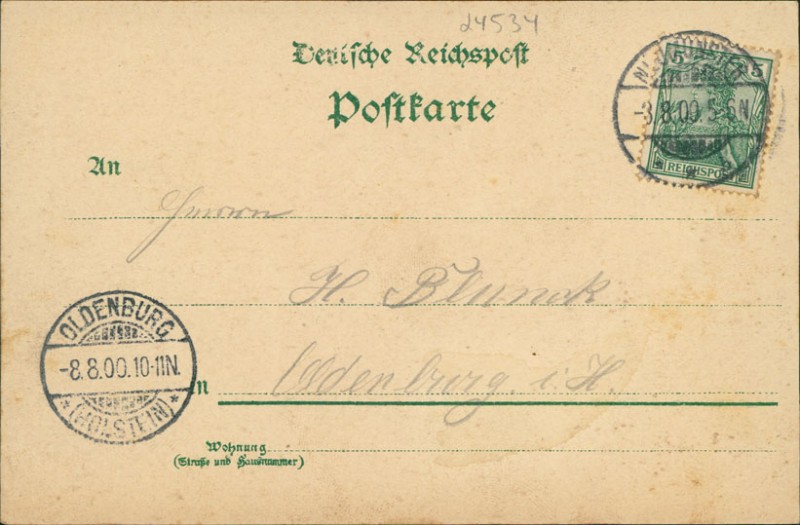 24534
Deutsche Reichspost
Postkarte
5 5
-8.8.00.5-6N
REICHSPOST
An
Herrn
H. Blunck
OLDENBURG
-8.8.00.10-11N.
* (HOLSTEIN) *
in Oldenburg i. H.
Wohnung
(Straße und Hausnummer)